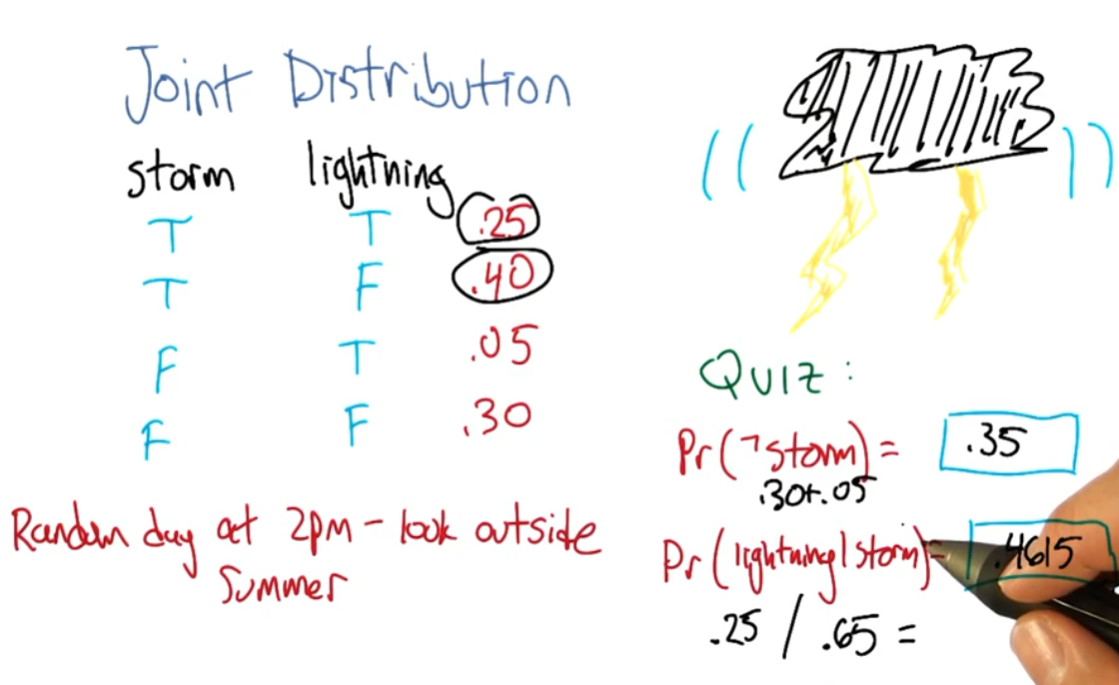 Joint Distribution
storm lightning
T T .25
T F .40
F T .05
F F .30
Random day at 2pm - look outside
Summer
Quiz:
Pr(¬storm) = .35
.30+.05
Pr(lightning|storm) = .4615
.25 / .65 =